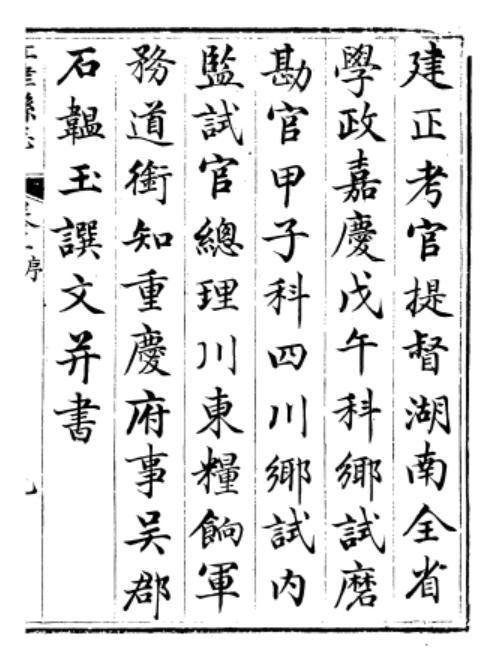 建正考官提督湖南全省
學政嘉慶戊午科鄉試磨
勘官甲子科四川鄉試内
監試官總理川東糧餉軍
務道銜知重慶府事吴郡
石韞玉譔文并書
序
九